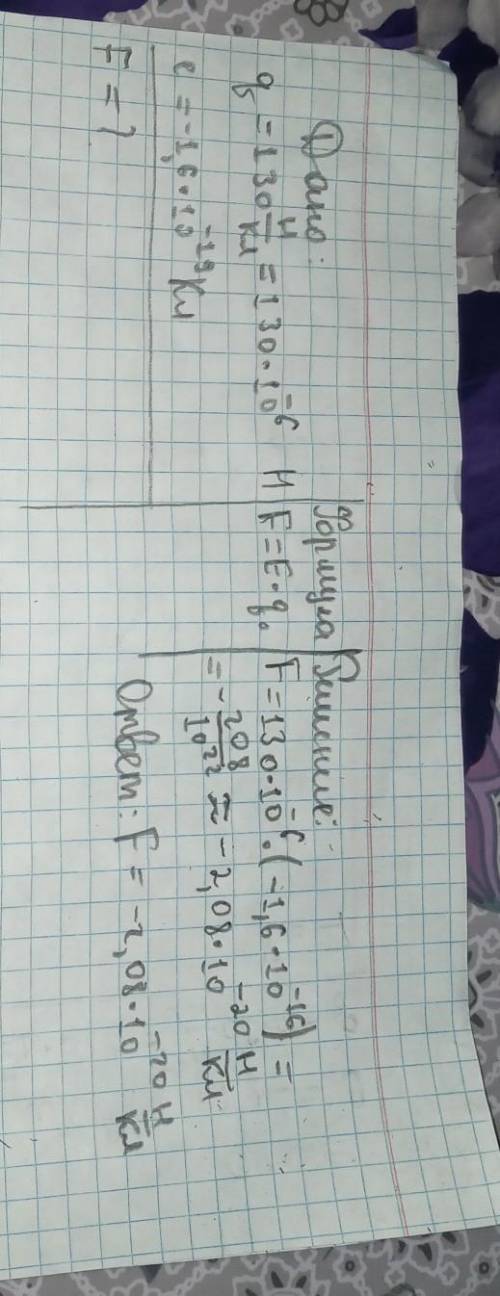 Дано:
q₀ = 130 Н/Кл = 130·10⁻⁶ Н
e = -1,6·10⁻¹⁹ Кл
F = ?
Формула
F = E·q₀
Решение:
F = 130·10⁻⁶·(-1,6·10⁻¹⁶) =
= -208/10²² ≈ -2,08·10⁻²⁰ Н/Кл
Ответ: F = -2,08·10⁻²⁰ Н/Кл